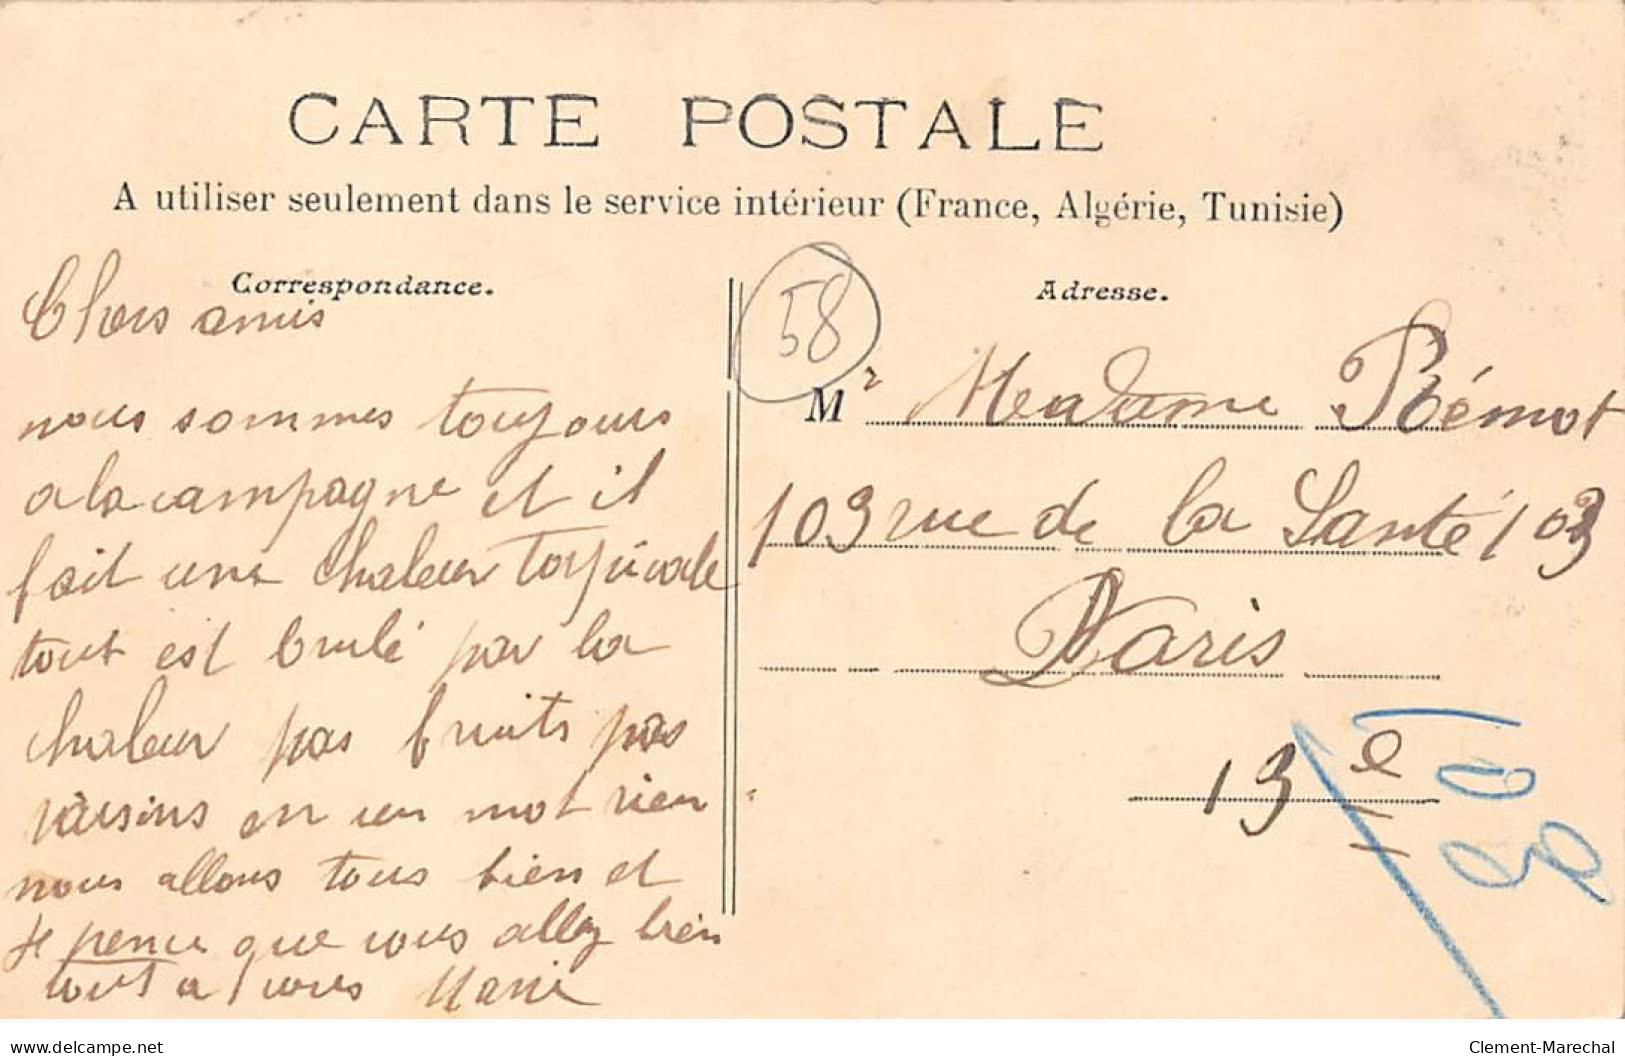 CARTE POSTALE
A utiliser seulement dans le service intérieur (France, Algérie, Tunisie)
Correspondance.
Adresse.
58
Chers amis
nous sommes toujours
a la campagne et il
fait une chaleur
tout est brulé par la
chaleur pas fruits pas
raisins en un mot rien
nous allons tous bien et
je pence que vous allez bien
tout a vous Marie
Mr Madame Rémot
103 rue de la Santé 103
Paris
13e
delcampe.net
Clement-Marechal